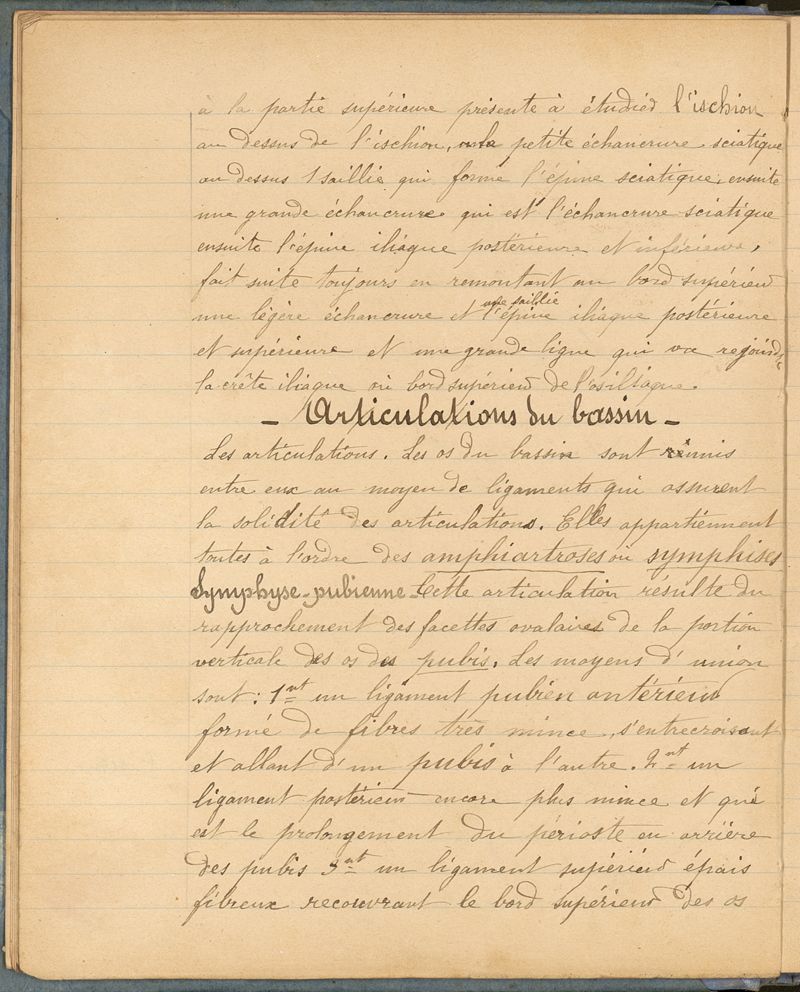 à la partie supérieure présente à étudier l'ischion
au dessus de l'ischion, la petite échancrure sciatique
au dessus 1 saillie qui forme l'épine sciatique, ensuite
une grande échancrure qui est l'échancrure sciatique
ensuite l'épine iliaque postérieure et inférieure,
fait suite toujours en remontant au bord supérieur
une légère échancrure et une saillie l'épine iliaque postérieure
et supérieure et une grande ligne qui va rejoindre
la crête iliaque ou bord supérieur de l'os iliaque.
- Articulations du bassin -
Les articulations. Les os du bassin sont réunis
entre eux au moyen de ligaments qui assurent
la solidité des articulations. Elles appartiennent
toutes à l'ordre des amphiartroses ou symphises
Symphyse-pubienne - Cette articulation résulte du
rapprochement des facettes ovalaires de la portion
verticale des os des pubis. Les moyens d'union
sont : 1nt un ligament pubien antérieur
formé de fibres très mince, s'entrecroisant
et allant d'un pubis à l'autre. 2nt un
ligament postérieur encore plus mince et qui
est le prolongement du périoste en arrière
des pubis 3nt un ligament supérieur épais
fibreux recouvrant le bord supérieur des os